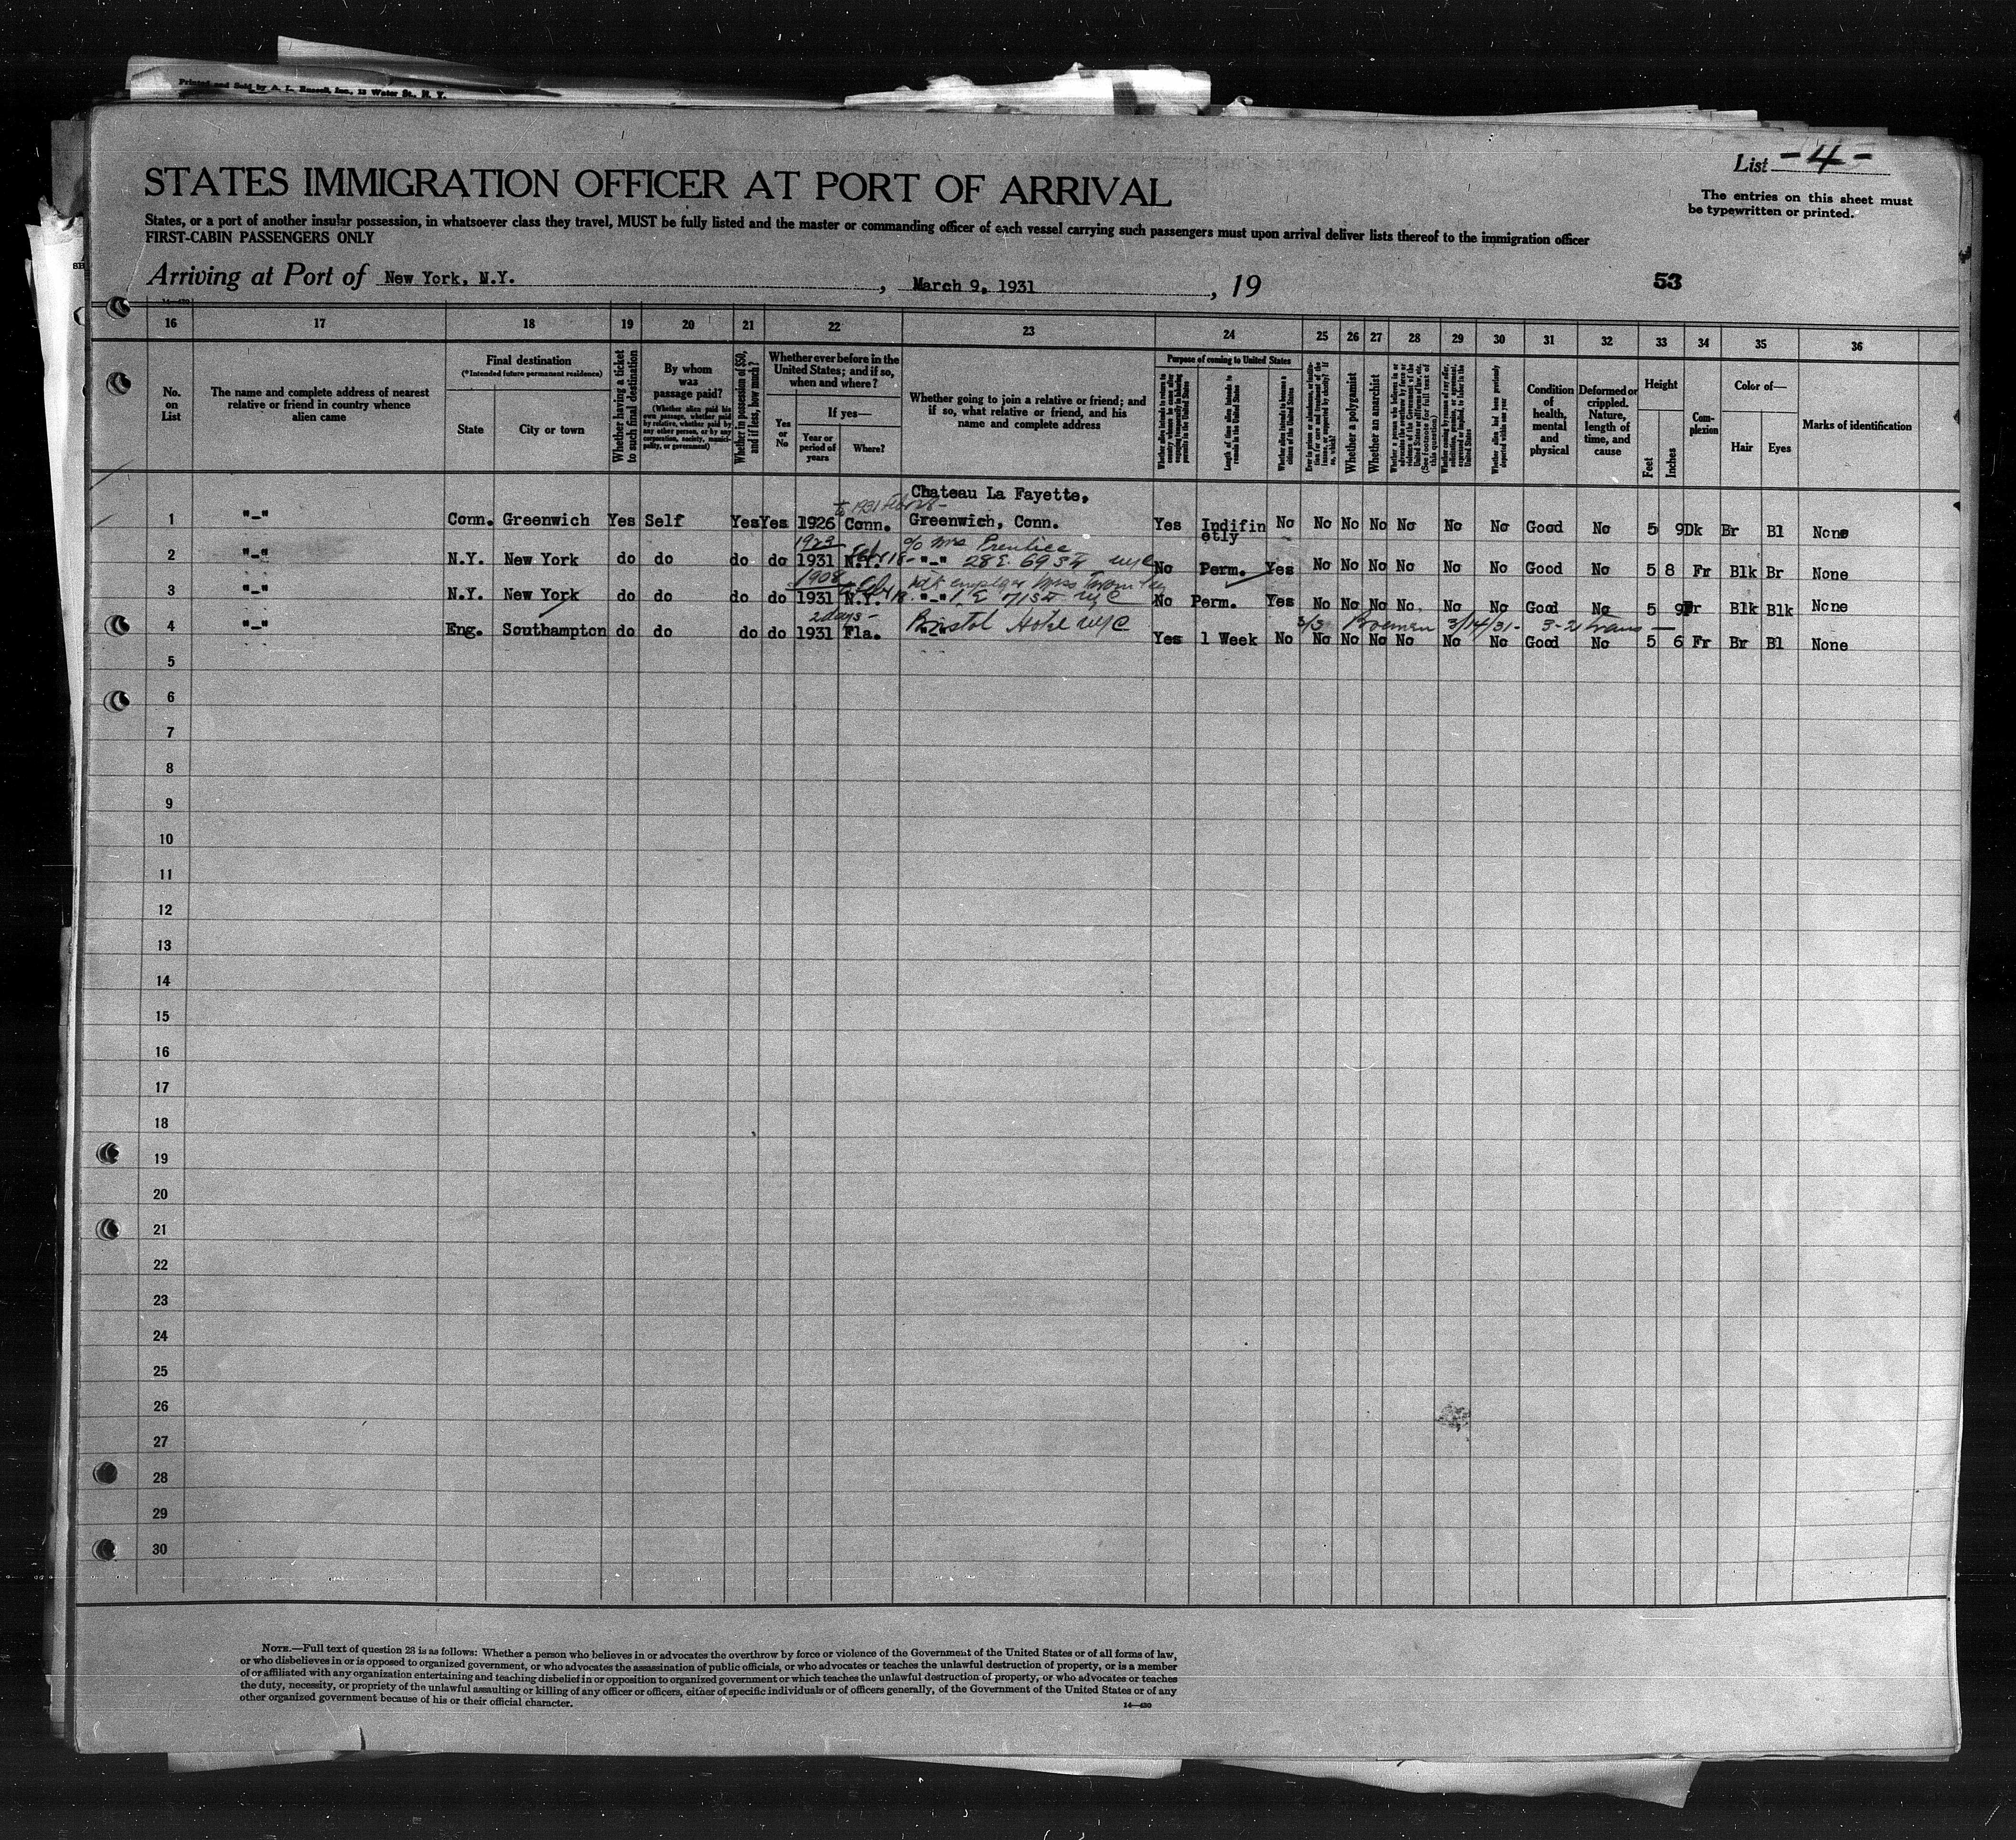 Printed and Sold by A. L. Russell, Inc., 13 Water St., N. Y.
List -4-
STATES IMMIGRATION OFFICER AT PORT OF ARRIVAL
The entries on this sheet must
be typewritten or printed.
States, or a port of another insular possession, in whatsoever class they travel, MUST be fully listed and the master or commanding officer of each vessel carrying such passengers must upon arrival deliver lists thereof to the immigration officer
FIRST-CABIN PASSENGERS ONLY
Arriving at Port of New York, N.Y. , March 9, 1931 , 19
53
16 17 18 19 20 21 22 23 24 25 26 27 28 29 30 31 32 33 34 35 36
No. on List
The name and complete address of nearest relative or friend in country whence alien came
Final destination
(*Intended future permanent residence)
State
City or town
Whether having a ticket to such final destination
By whom was passage paid?
(Whether alien paid his own passage, whether paid by relative, whether paid by any other person, or by any corporation, society, municipality, or government)
Whether in possession of $50, and if less, how much?
Whether ever before in the United States; and if so, when and where?
Yes or No
If yes—
Year or period of years
Where?
Whether going to join a relative or friend; and if so, what relative or friend, and his name and complete address
Purpose of coming to United States
Length of time alien intends to remain in the United States
Whether alien intends to become a citizen of the United States
Whether a polygamist
Whether an anarchist
Whether alien had been previously deported within one year
Condition of health, mental and physical
Deformed or crippled. Nature, length of time, and cause
Height
Feet
Inches
Complexion
Color of—
Hair
Eyes
Marks of identification
Chateau La Fayette,
to 1931 Feb 28-
1 "-" Conn. Greenwich Yes Self Yes Yes 1926 Conn. Greenwich, Conn. Yes Indifin No No No No No No No Good No 5 9 Dk Br Bl None
etly
1923 c/o Mrs Prentice
2 "-" N.Y. New York do do do do 1931 N.Y. "-" 28 E. 69 St NYC No Perm. Yes No No No No No No Good No 5 8 Fr Blk Br None
1908 employer Miss
3 "-" N.Y. New York do do do do 1931 N.Y. "-" 1 E 71 St NYC No Perm. Yes No No No No No No Good No 5 9 Fr Blk Blk None
2 days- Bristol Hotel NYC 3/3 Bremen 3/14/31- 3-21 trans
4 "-" Eng. Southampton do do do do 1931 Fla. "-" Yes 1 Week No No No No No No No Good No 5 6 Fr Br Bl None
5
6
7
8
9
10
11
12
13
14
15
16
17
18
19
20
21
22
23
24
25
26
27
28
29
30
NOTE.—Full text of question 28 is as follows: Whether a person who believes in or advocates the overthrow by force or violence of the Government of the United States or of all forms of law,
or who disbelieves in or is opposed to organized government, or who advocates the assassination of public officials, or who advocates or teaches the unlawful destruction of property, or is a member
of or affiliated with any organization entertaining and teaching disbelief in or opposition to organized government or which teaches the unlawful destruction of property, or who advocates or teaches
the duty, necessity, or propriety of the unlawful assaulting or killing of any officer or officers, either of specific individuals or of officers generally, of the Government of the United States or of any
other organized government because of his or their official character.
14—430